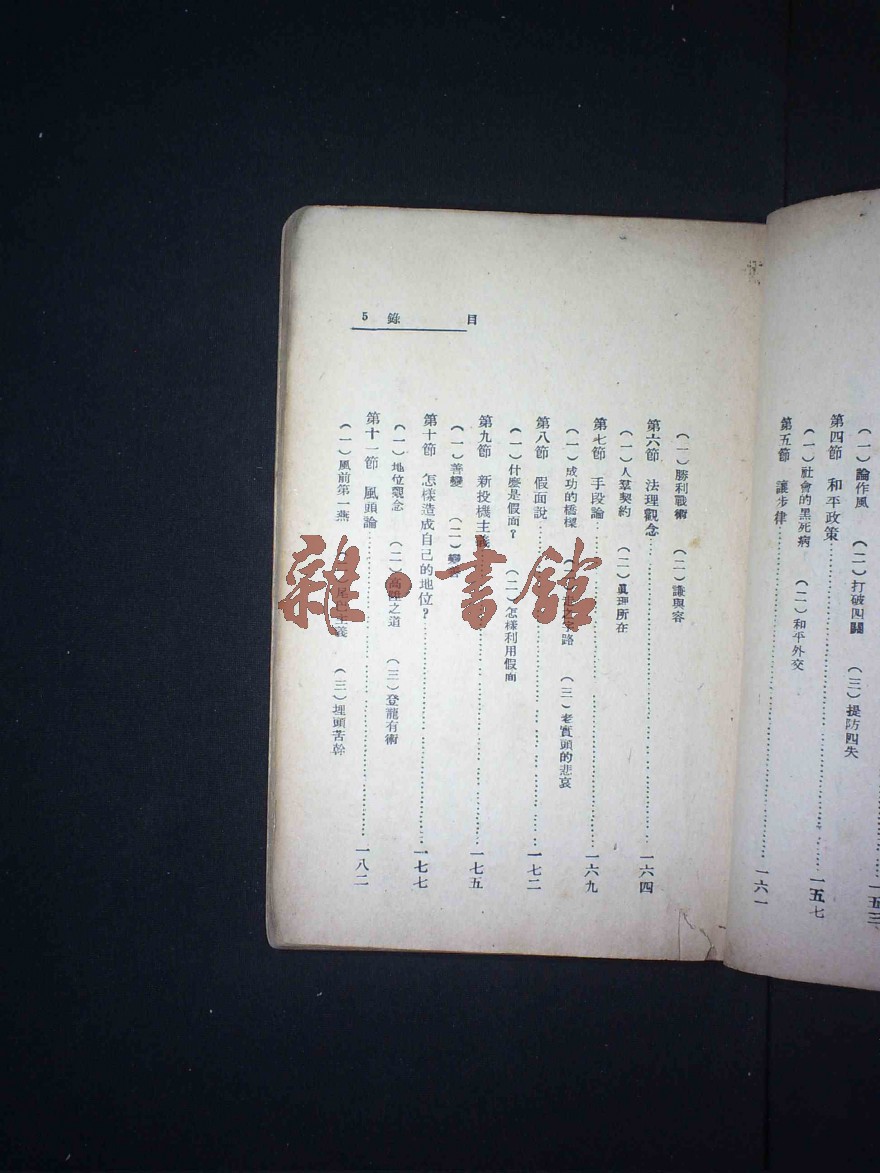 一五三
(一)論作風 (二)打破四關 (三)提防四失
第四節 和平政策……一五七
(一)社會的黑死病 (二)和平外交
第五節 讓步律……一六一
目 錄 5
(一)勝利戰術 (二)謙與容
第六節 法理觀念……一六四
(一)人羣契約 (二)眞理所在
第七節 手段論……一六九
(一)成功的橋樑 之字路 (三)老實頭的悲哀
第八節 假面說……一七二
(一)什麼是假面? (二)怎樣利用假面
第九節 新投機主義……一七五
(一)善變 (二)
第十節 怎樣造成自己的地位?……一七七
(一)地位觀念 (二)高 之道 (三)登龍有術
第十一節 風頭論……一八二
(一)風前第一燕 尾巴主義 (三)埋頭苦幹
雜·書館